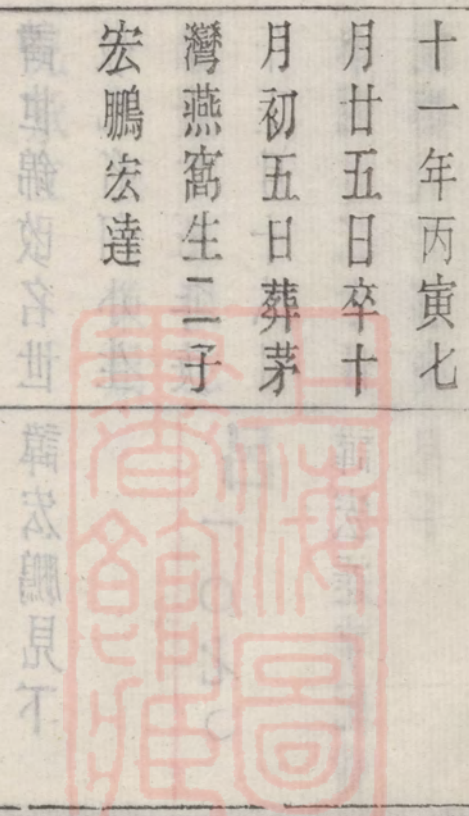 十一年丙寅七
月廿五日卒十
月初五日葬茅
灣燕窩生二子
宏鵬宏達
上海圖書館藏